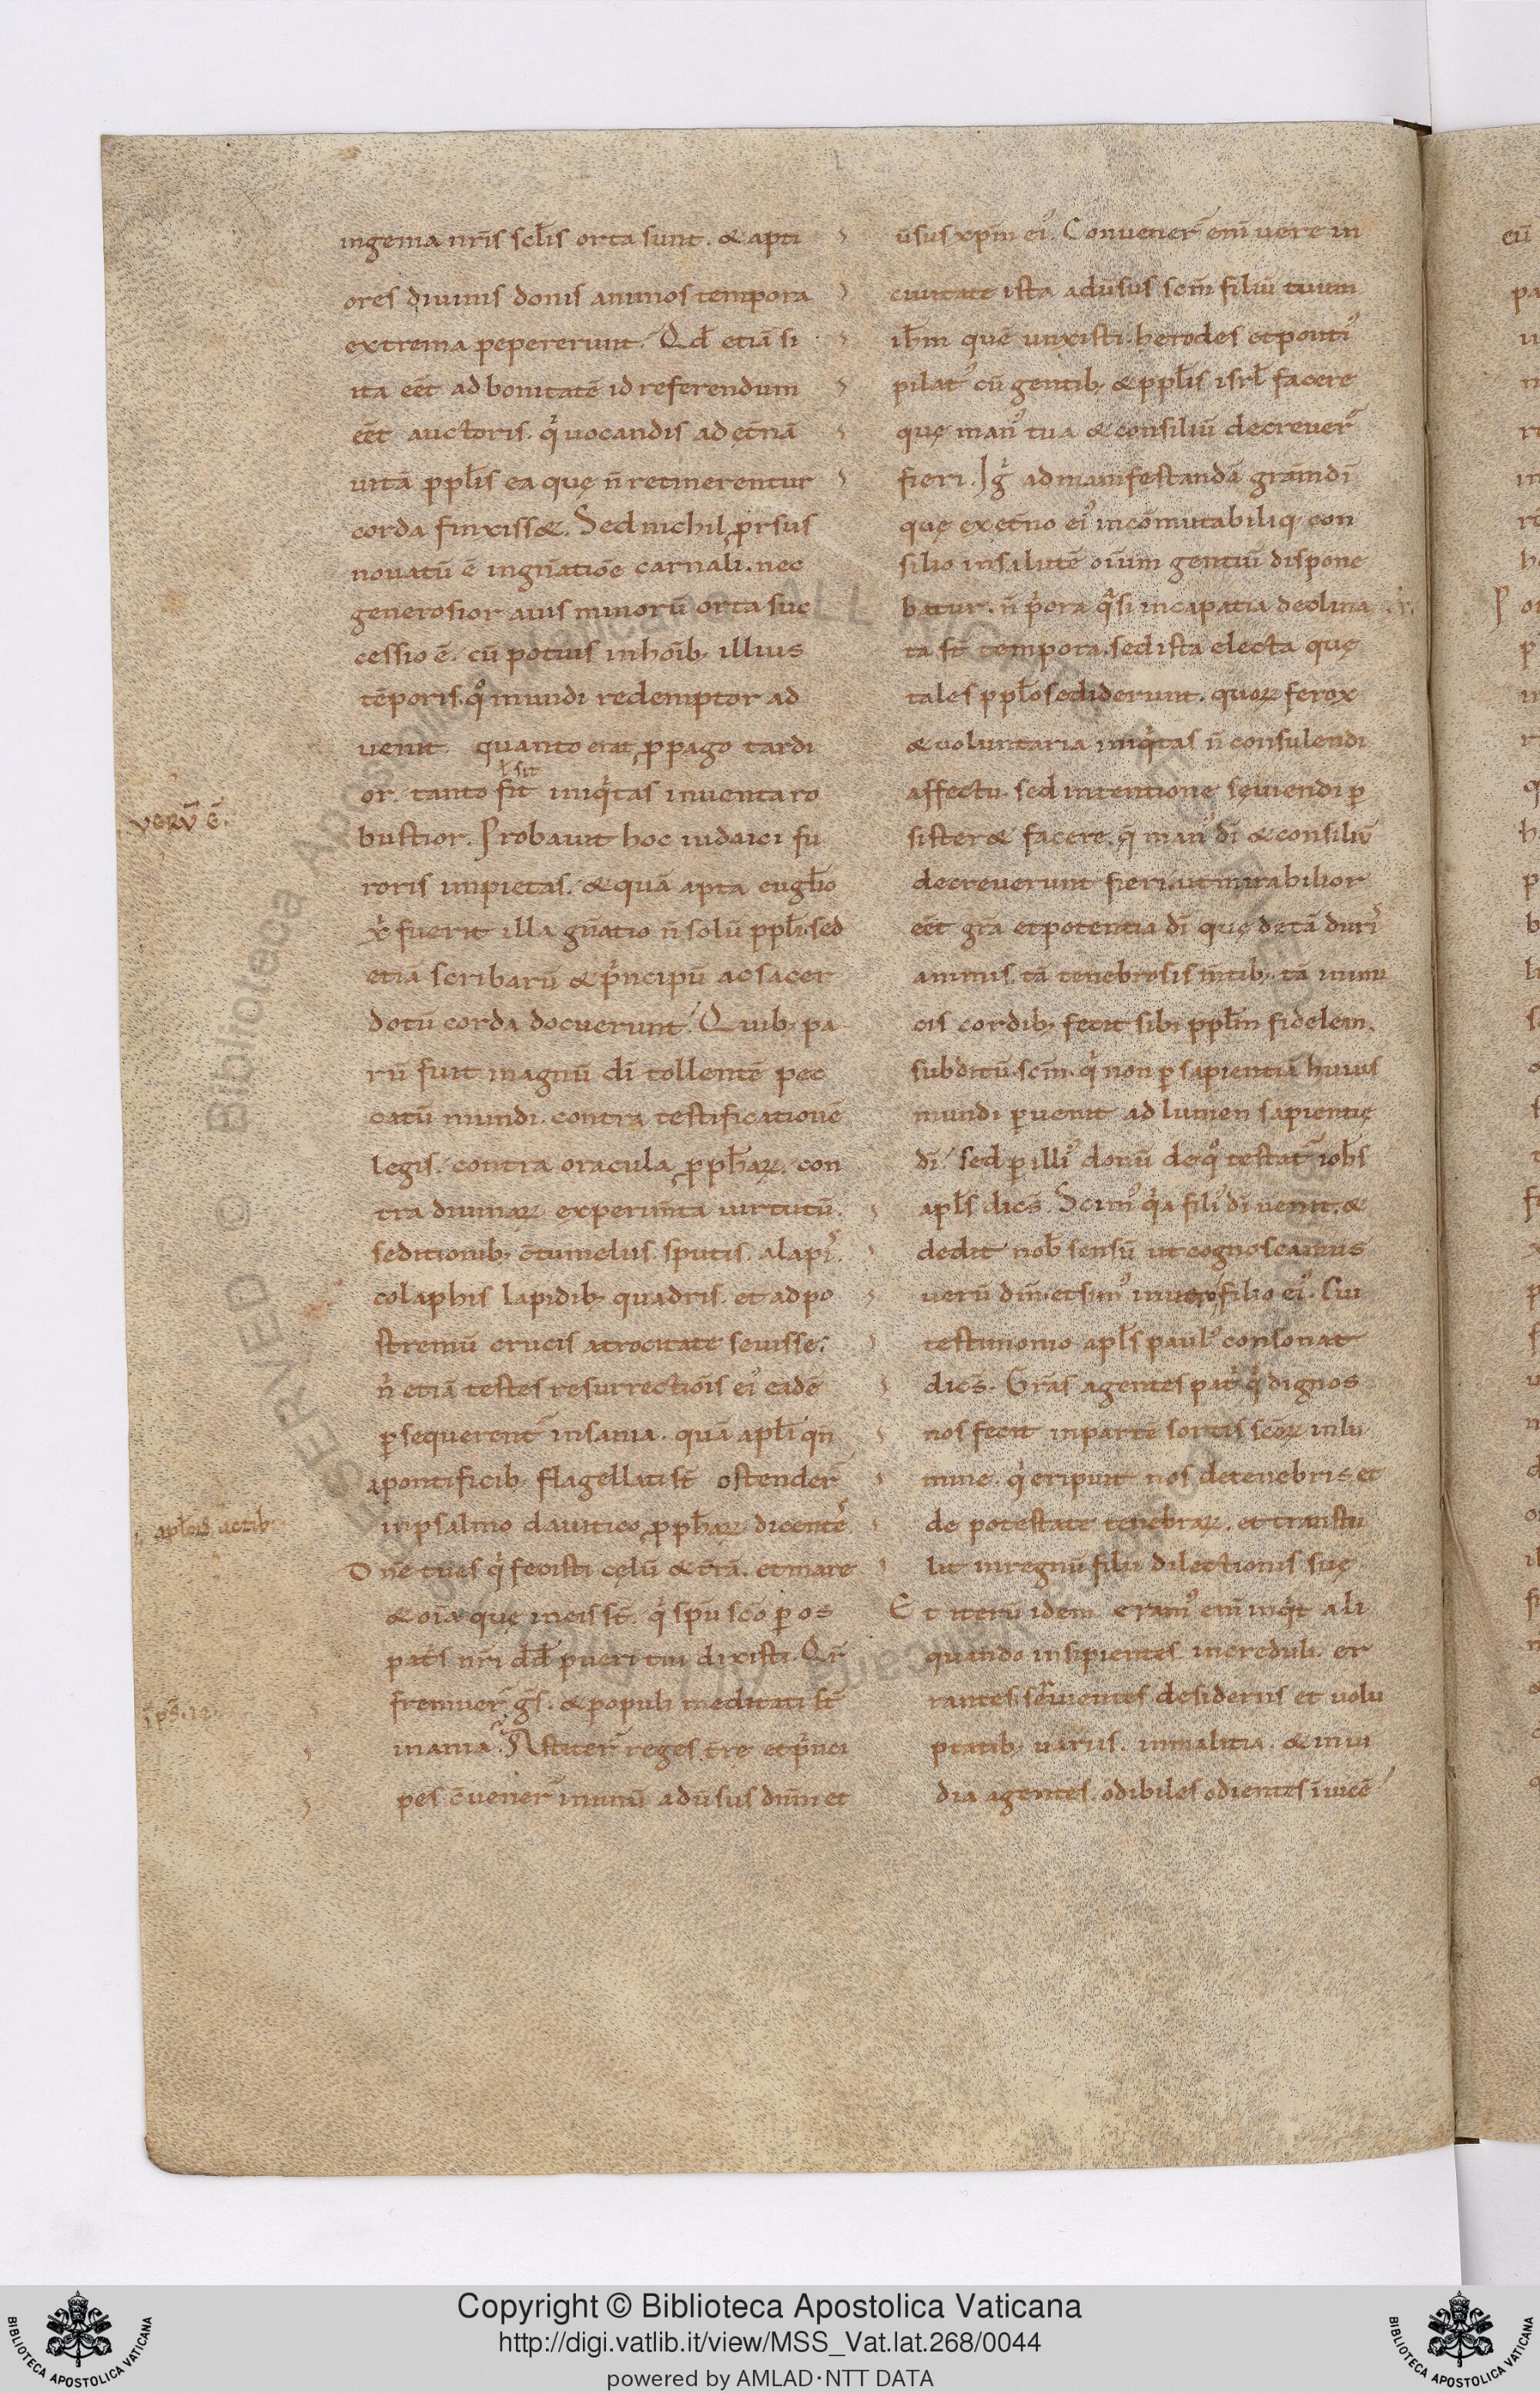 ingenia nr̄is scl̄is orta sunt. & apti
ores diuinis donis animos tempora
extrema pepererunt. Qd̄ etiā si
ita eēt ad bonitatē id referendum
eēt auctoris. qͥ uocandis ad ęt̄nā
uitā ppl̄is ea quę n̄ retinerentur
corda finxiss&. Sed nichil ꝓrsus
nouatū ē in gn̄atiōe carnali. nec
generosior auis minorū orta suc
cessio ē. cū potius in hoīb; illius
tēporis. qͦ mundi redemptor ad
uenit. quanto erat ꝓpago tardi
ł sit
or. tanto fit iniqͥtas inuenta ro
bustior. Probauit hoc iudaici fu
roris impietas. & quā apta eugl̄io
xͥ fuerit illa gn̄atio n̄ solū ppl̄i. sed
etiā scribarū & pͥncipū ac sacer
dotū corda docuerunt. Quib; pa
rū fuit magnū dī tollentē pec
catū mundi. contra testificationē
legis. contra oracula ꝓph̄aꝝ. con
tra diuinaꝝ experim̄ta uirtutū.
seditionib; c̄tumeliis. sputis. alapiˢ.
colaphis lapidib; quadris. et ad po
stremū crucis atrocitate seuisse.
nͥ etiā testes resurrectiōis eiꝰ eadē
ꝑsequerent᷑ insania. quā apl̄i qn̄
a pontificib; flagellati st̄ ostender̄
in psalmo dauitico ꝓph̄aꝝ dicenteˢ.
Dn̄e tu es qͥ fecisti cęlū & t̄rā. et mare
& oīa quę in eis st̄. qͥ spū scō ꝑ os
pat̄s nr̄i dd̄ pueri tui dixisti. Qr̄
fremuer̄ gs̄. & populi meditati st̄
inania. Astiter̄ reges t̄rę et pͥnci
pes c̄uener̄ in unū adūsus dn̄m et
uerū ē.
apl̄oꝝ actib;
ūsus xp̄m eiꝰ. Conuener̄ enī uere in
ciuitate ista adūsus scm̄ filiū tuum
ih̄m quē unxisti. herodes et pontiꝰ
pilatꝰ cū gentib; & ppl̄is isrl̄ facere
quę manꝰ tua & consiliū decreuer̄
fieri. Igͥ ad manifestandā grām dī
quę ex ęt̄no eiꝰ incōmutabiliq; con
silio in salutē oīum gentiū dispone
batur. n̄ pͥora qͣsi incapatia declina
ta st̄ tempora. sed ista electa quę
tales ppl̄os ediderunt. quoꝝ ferox
& uoluntaria iniqͥtas n̄ consulendi
affectu. sed intentione sęuiendi ꝑ
sister& facere. q̄ manꝰ dī & consiliū
decreuerunt fieri. ut mirabilior
eēt grā et potentia dī quę de tā duriˢ
animis. tā tenebrosis m̄tib;. tā inimi
cis cordib; fecit sibi ppl̄m fidelem.
subditū. scm̄. qͥ non ꝑ sapientiā huius
mundi ꝑuenit ad lumen sapientię
dī. sed ꝑ illiꝰ donū de qͦ testat᷑ ioh̄s
apl̄s dicēs. Scimꝰ qͥa filiꝰ dī uenit. &
dedit nob̄ sensū ut cognoscamus
uerū dm̄. et simꝰ in uero filio eiꝰ. Cui
testimonio apl̄s paulꝰ consonat
dicēs. Grās agentes patͥ qͥ dignos
nos fecit in partē sortis scōꝝ in lu
mine. qͥ eripuit nos de tenebris. et
de potestate tenebraꝝ. et transtu
lit in regnū filii dilectionis suę
Et iterū idem. eramꝰ enī inqͥt ali
quando insipientes. increduli. er
rantes. seruientes desideriis et uolu
ptatib; uariis. in malitia. & inui
dia agentes. odibiles odientes īuicē
BIBLIOTECA APOSTOLICA VATICANA
Copyright © Biblioteca Apostolica Vaticana
http://digi.vatlib.it/view/MSS_Vat.lat.268/0044
powered by AMLAD·NTT DATA
BIBLIOTECA APOSTOLICA VATICANA